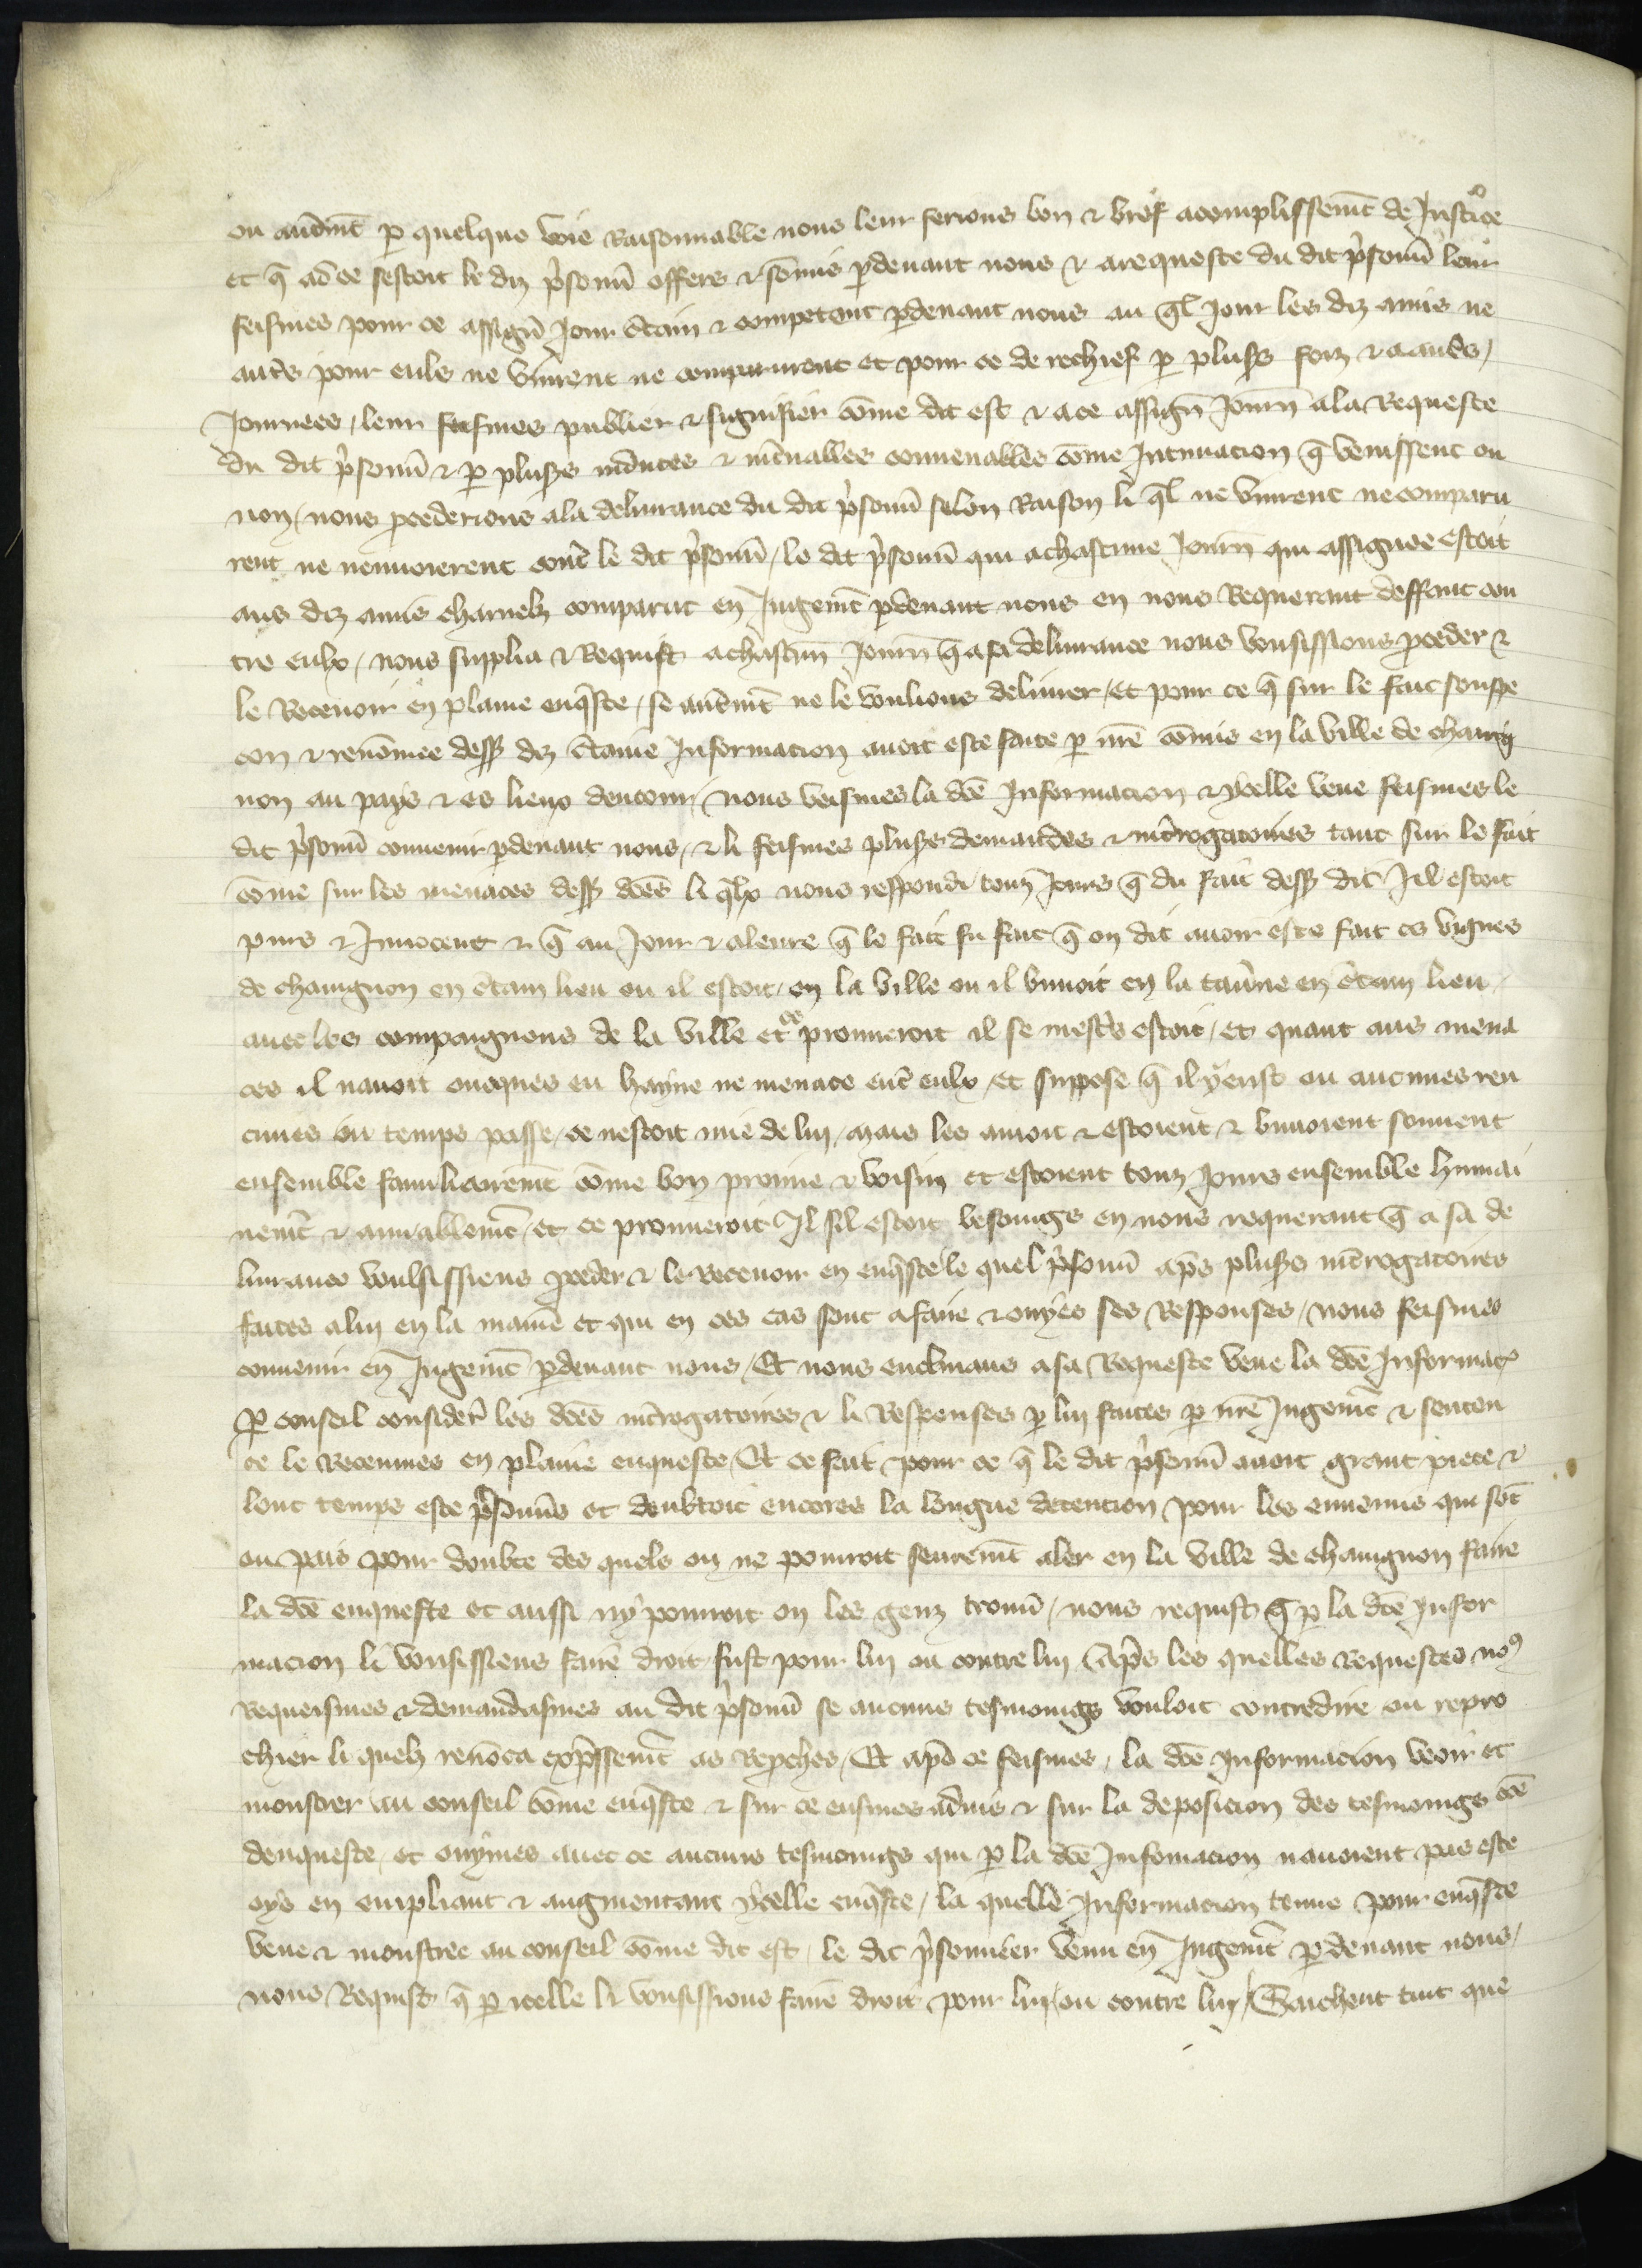 ou autremt̄ ꝑ quelque voie Raisonnable nous leur ferions bon & brief acomplissemt̄ de Justice
et q̄ ad ce sestoit le diz p̃sonnẽ offers & sōmis ꝑdeuant nous & arequeste du dit p̃sonnẽ leur
feismes pour ce assignẽ Jour c̃tain & competent ꝑdeuant nous au q̃l Jour les diz amis ne
aut̃s pour euls ne vinrent ne comparurent et pour ce de rechief ꝑ plus̃s foiz & a aut̃s /
Journees / leur feismes publier & signifier cōme dit est & a ce assignẽ Journ̄ ala Requeste
du dit p̃sonnẽ & ꝑ plus̃s induces & int̃ualles conuenables cōme Intimacion q̄ venissent ou
non / nous ꝓcederions ala deliurance du dit p̃sonnẽ selon Raison li q̃l ne vinrent ne comparu
rent ne nenuoierent cont̃ le dit p̃sonnẽ / le dit p̃sonnẽ qui achascune Journ̄ qui assignee estoit
aus diz amis charnelz comparut en Jugemt̄ ꝑdeuant nous en nous Requerant deffaut con
tre eulx / nous supplia & Requist achascun̄ Journ̄ q̄ a sa deliurance nous vousissions ꝓceder &
le Receuoir en plaine enq̃ste / se autremt̄ ne le voulions deliurer / et pour ce q̄ sur le fait souspe
con & renōmee dess̃ diz c̃taine Informacion auoit este faite ꝑ nr̃e cōmis en la ville de chauig
non au pays & es lieux denuiron / nous veismes la dc̃e Informacion & ycelle veue feismes le
dit p̃sonnẽ conuenir ꝑdeuant nous / & li feismes plus̃s demandes & int̃rogatoires tant sur le fait
cōme sur les menaces dess̃ dc̃es li q̃lx nous respondi touz Jours q̄ du fait dess̃ dit Jl estoit
purs & Innocent & q̄ au Jour & aleure q̄ le fait fu fait q̄ on dit auoir este fait es vignes
de chauignon en c̃tain lieu ou il estoit / en la ville ou il buuoit en la tau̾ne en c̃tain lieu /
auec les compaignons de la ville et ce prouueroit il se mest̃s estoit / et quant aus mena
ces il nauoit oncques eu hayne ne menace ent̃ eulx / et suppose q̄ il y eust ou aucunes ren
cunes ou temps passe / ce nestoit mie de lui / mais les amoit & estoient & buuoient souuent
ensemble familiairemt̄ cōme bon proime & voisin et estoient touz Jours ensemble humai
nemt̄ & amiablemt̄ / et ce prouueroit Jl sil estoit besoings en nous requerant q̄ a sa de
liurance voulsissiens ꝓceder & le Receuoir en enq̃ste / le quel p̃sonnẽ ap̃s plus̃s int̃rogatoires
faites alui en la maniẽ et qui en ces cas sont afaire & ouyes ses Responses / nous feismes
conuenir en Jugemt̄ ꝑdeuant nous / Et nous enclinans a sa Requeste veue la dc̃e Informac̃
Ꝑ conseil considerẽ les dc̃es int̃rogatoires & li Responses ꝑ lui faites ꝑ nr̃e Jugemt̄ & senten
ce le Receumes en plaine enqueste / Et ce fait / pour ce q̄ le dit p̃sonnẽ auoit grant piece &
lonc temps este p̃sonñs et doubtoit encores la longue detencion pour les ennemis qui sōt
ou pais pour doubte des quels on ne pourroit seuremt̄ aler en la ville de chauignon faire
la dc̃e enqueste et aussi ny pouroit on les genz trouuẽ / nous requist q̄ ꝑ la dc̃e Infor
macion li vousissiens faire droit fust pour lui ou contre lui / Ap̃s les quelles Requestes noꝰ
Requeismes & demandasmes au dit p̃sonnẽ se aucuns tesmoings vouloit contredire ou repro
chier li quelz renōca exp̃ssemt̄ as Reꝓches / Et ap̃s ce feismes / la dc̃e Informacion veoir et
monstrer au conseil cōme enq̃ste & sur ce eusmes aduis & sur la deposicion des tesmoings dc̃e
denqueste / et ouymes auec ce aucuns tesmoings qui ꝑ la dc̃e Infomacion nauoient pas este
oys en empliant & augmentant ycelle enq̃ste / la quelle Informacion tenue pour enq̃ste
veue & monstree au conseil cōme dit est / le dit p̃sonnier venu en Jugemt̄ ꝑdeuant nous /
nous Requist q̄ ꝑ icelle li vousissions faire droit pour lui / ou contre lui / Saichent tuit que